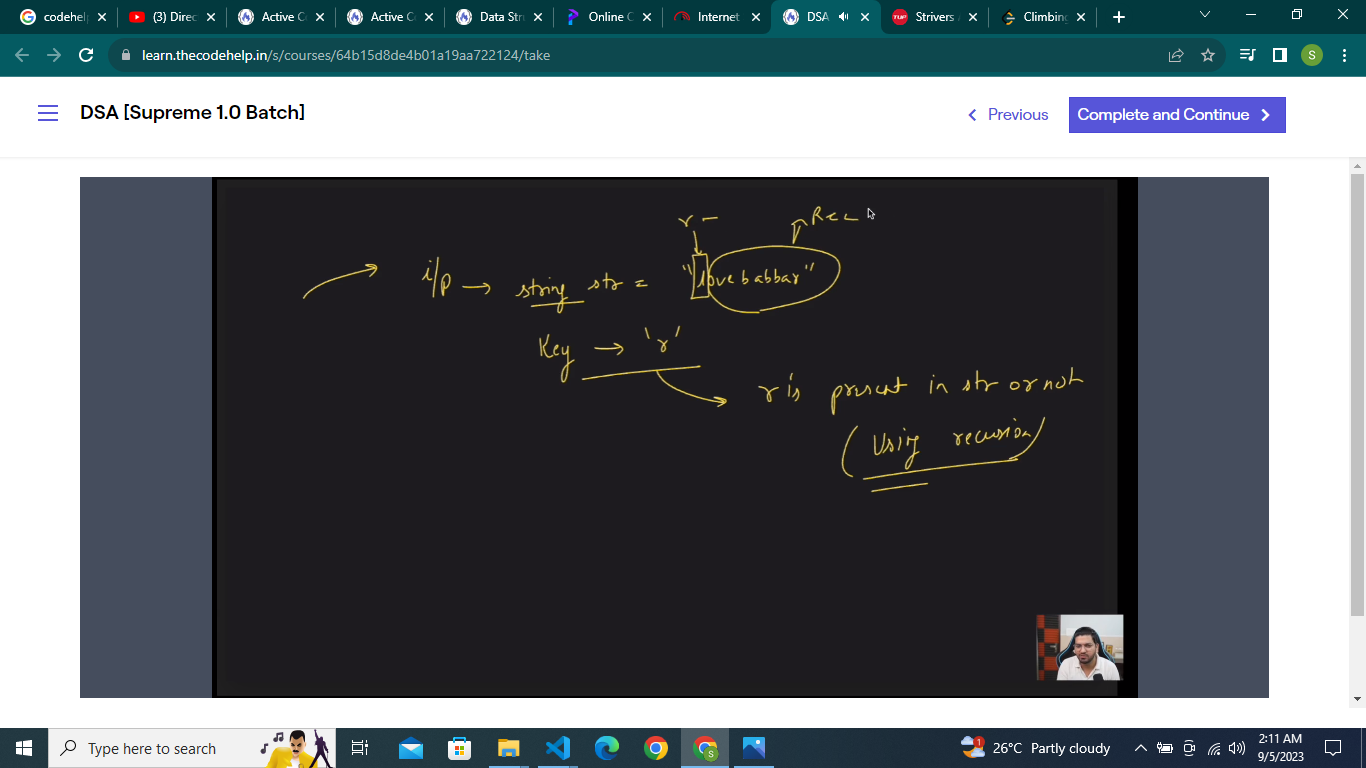 codehelp
(3) Direc
Active Co
Active Co
Data Stru
Online C
Internet
DSA
TUF
Strivers A
Climbing
learn.thecodehelp.in/s/courses/64b15d8de4b01a19aa722124/take
S
DSA [Supreme 1.0 Batch]
Previous
Complete and Continue
r -
Rec
i/p → string str = "lovebabbar"
Key → 'r'
r is present in str or not
(Using recursion)
Type here to search
S
1
26°C Partly cloudy
2:11 AM
9/5/2023